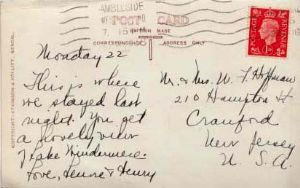 AMBLESIDE
7. 15
POST CARD
BRITISH MADE
CORRESPONDENCE
ADDRESS ONLY
POSTAGE REVENUE
Monday 22
This is where
we stayed last
night. You get
a lovely view
Lake Windermere.
Love, & Henry
Mr. & Mrs. W. F. Hoffman
210 Hampton St
Cranford
New Jersey
U. S. A.